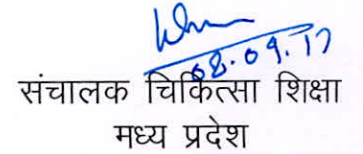 08.09.17
संचालक चिकित्सा शिक्षा
मध्य प्रदेश